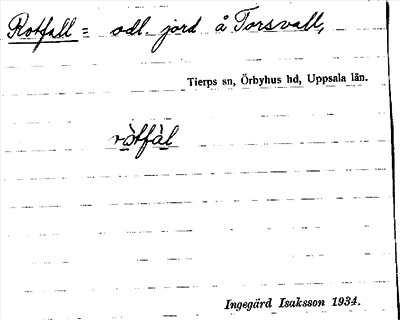 Rotfall = odl. jord å Torsvall,
Tierps sn, Örbyhus hd, Uppsala län.
ròtfàl
Ingegärd Isaksson 1934.